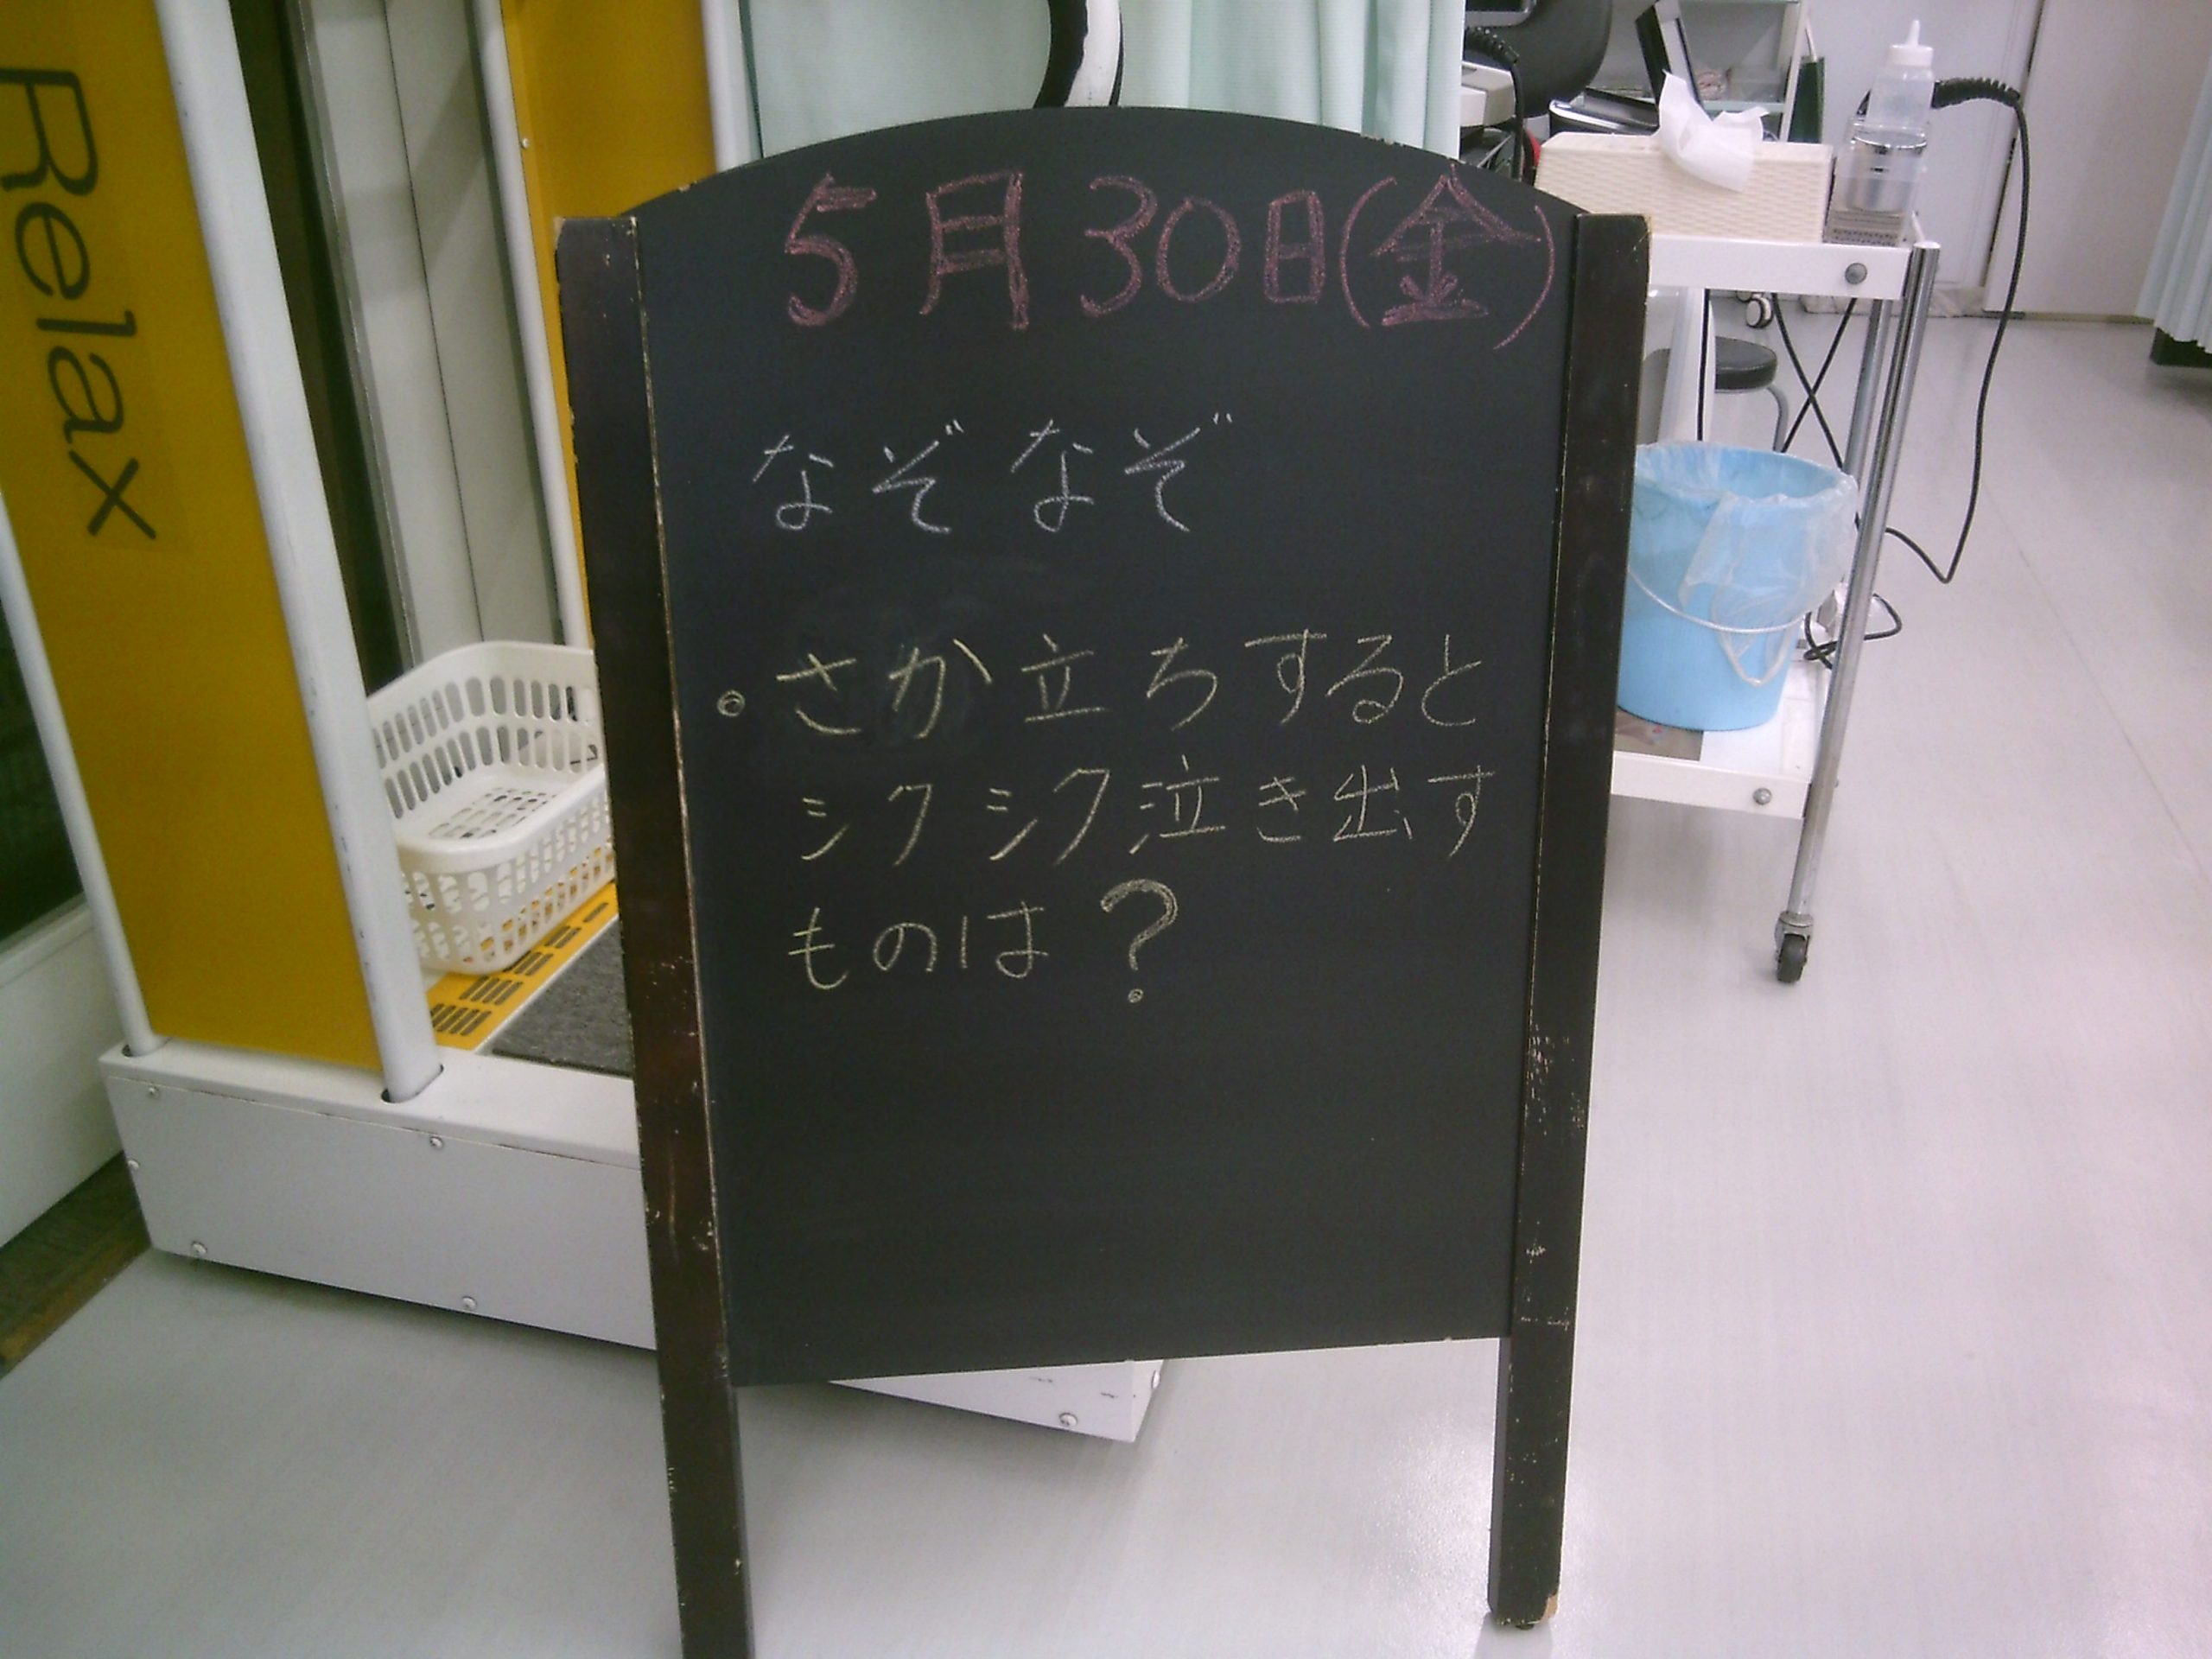 Relax
5月30日(金)
なぞなぞ
。さか立ちすると
シクシク泣き出す
ものは?